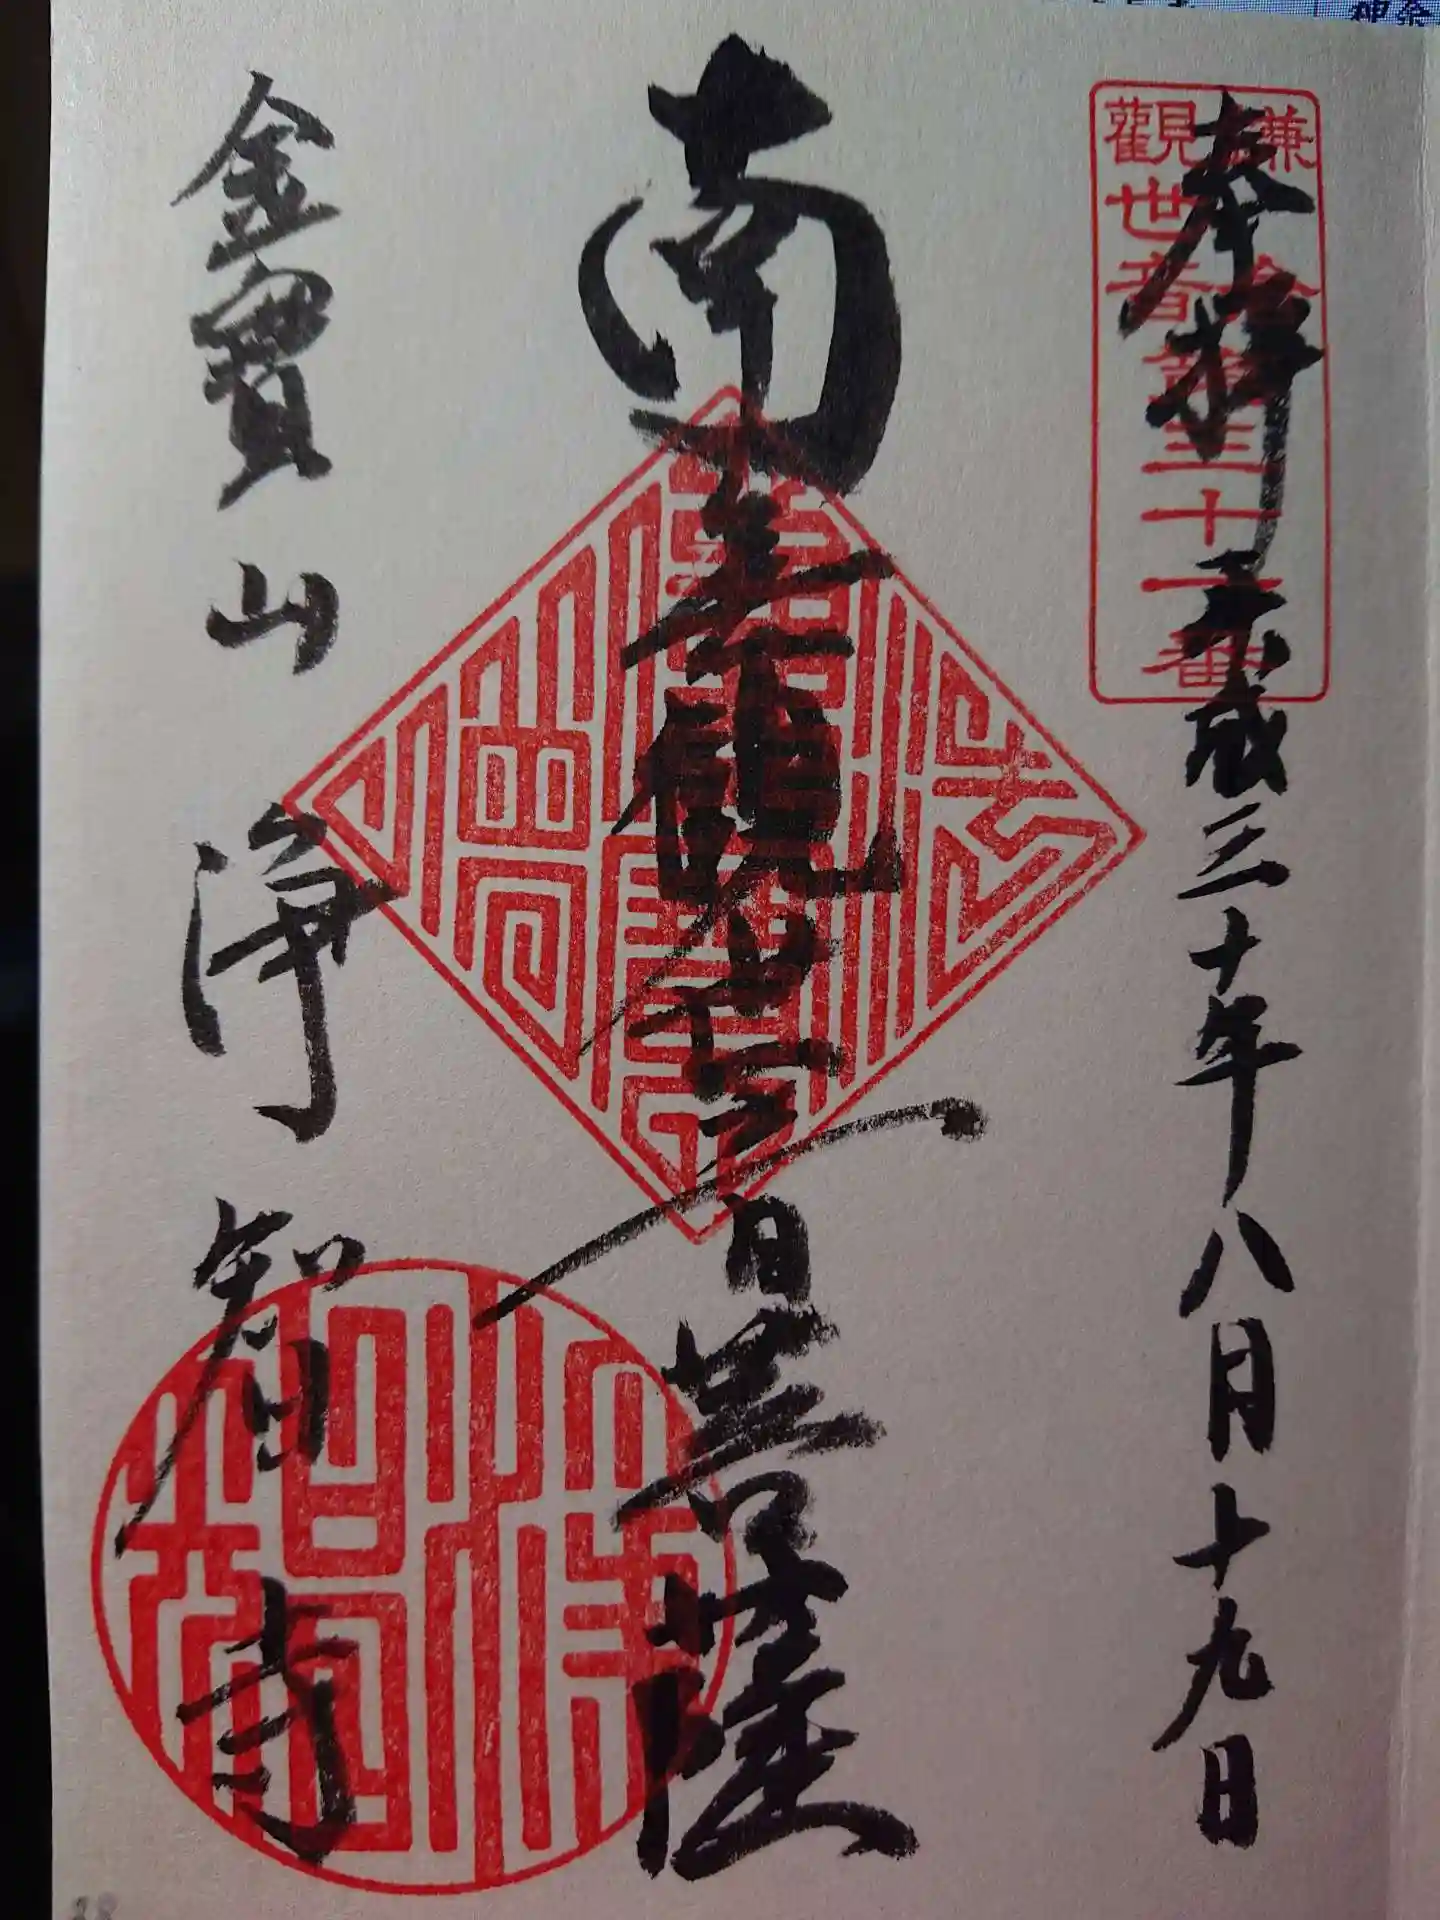 奉拝 平成三十年八月十九日
鎌倉
觀世音第三十一番
南無觀世音菩薩
金寶山 淨智寺
28